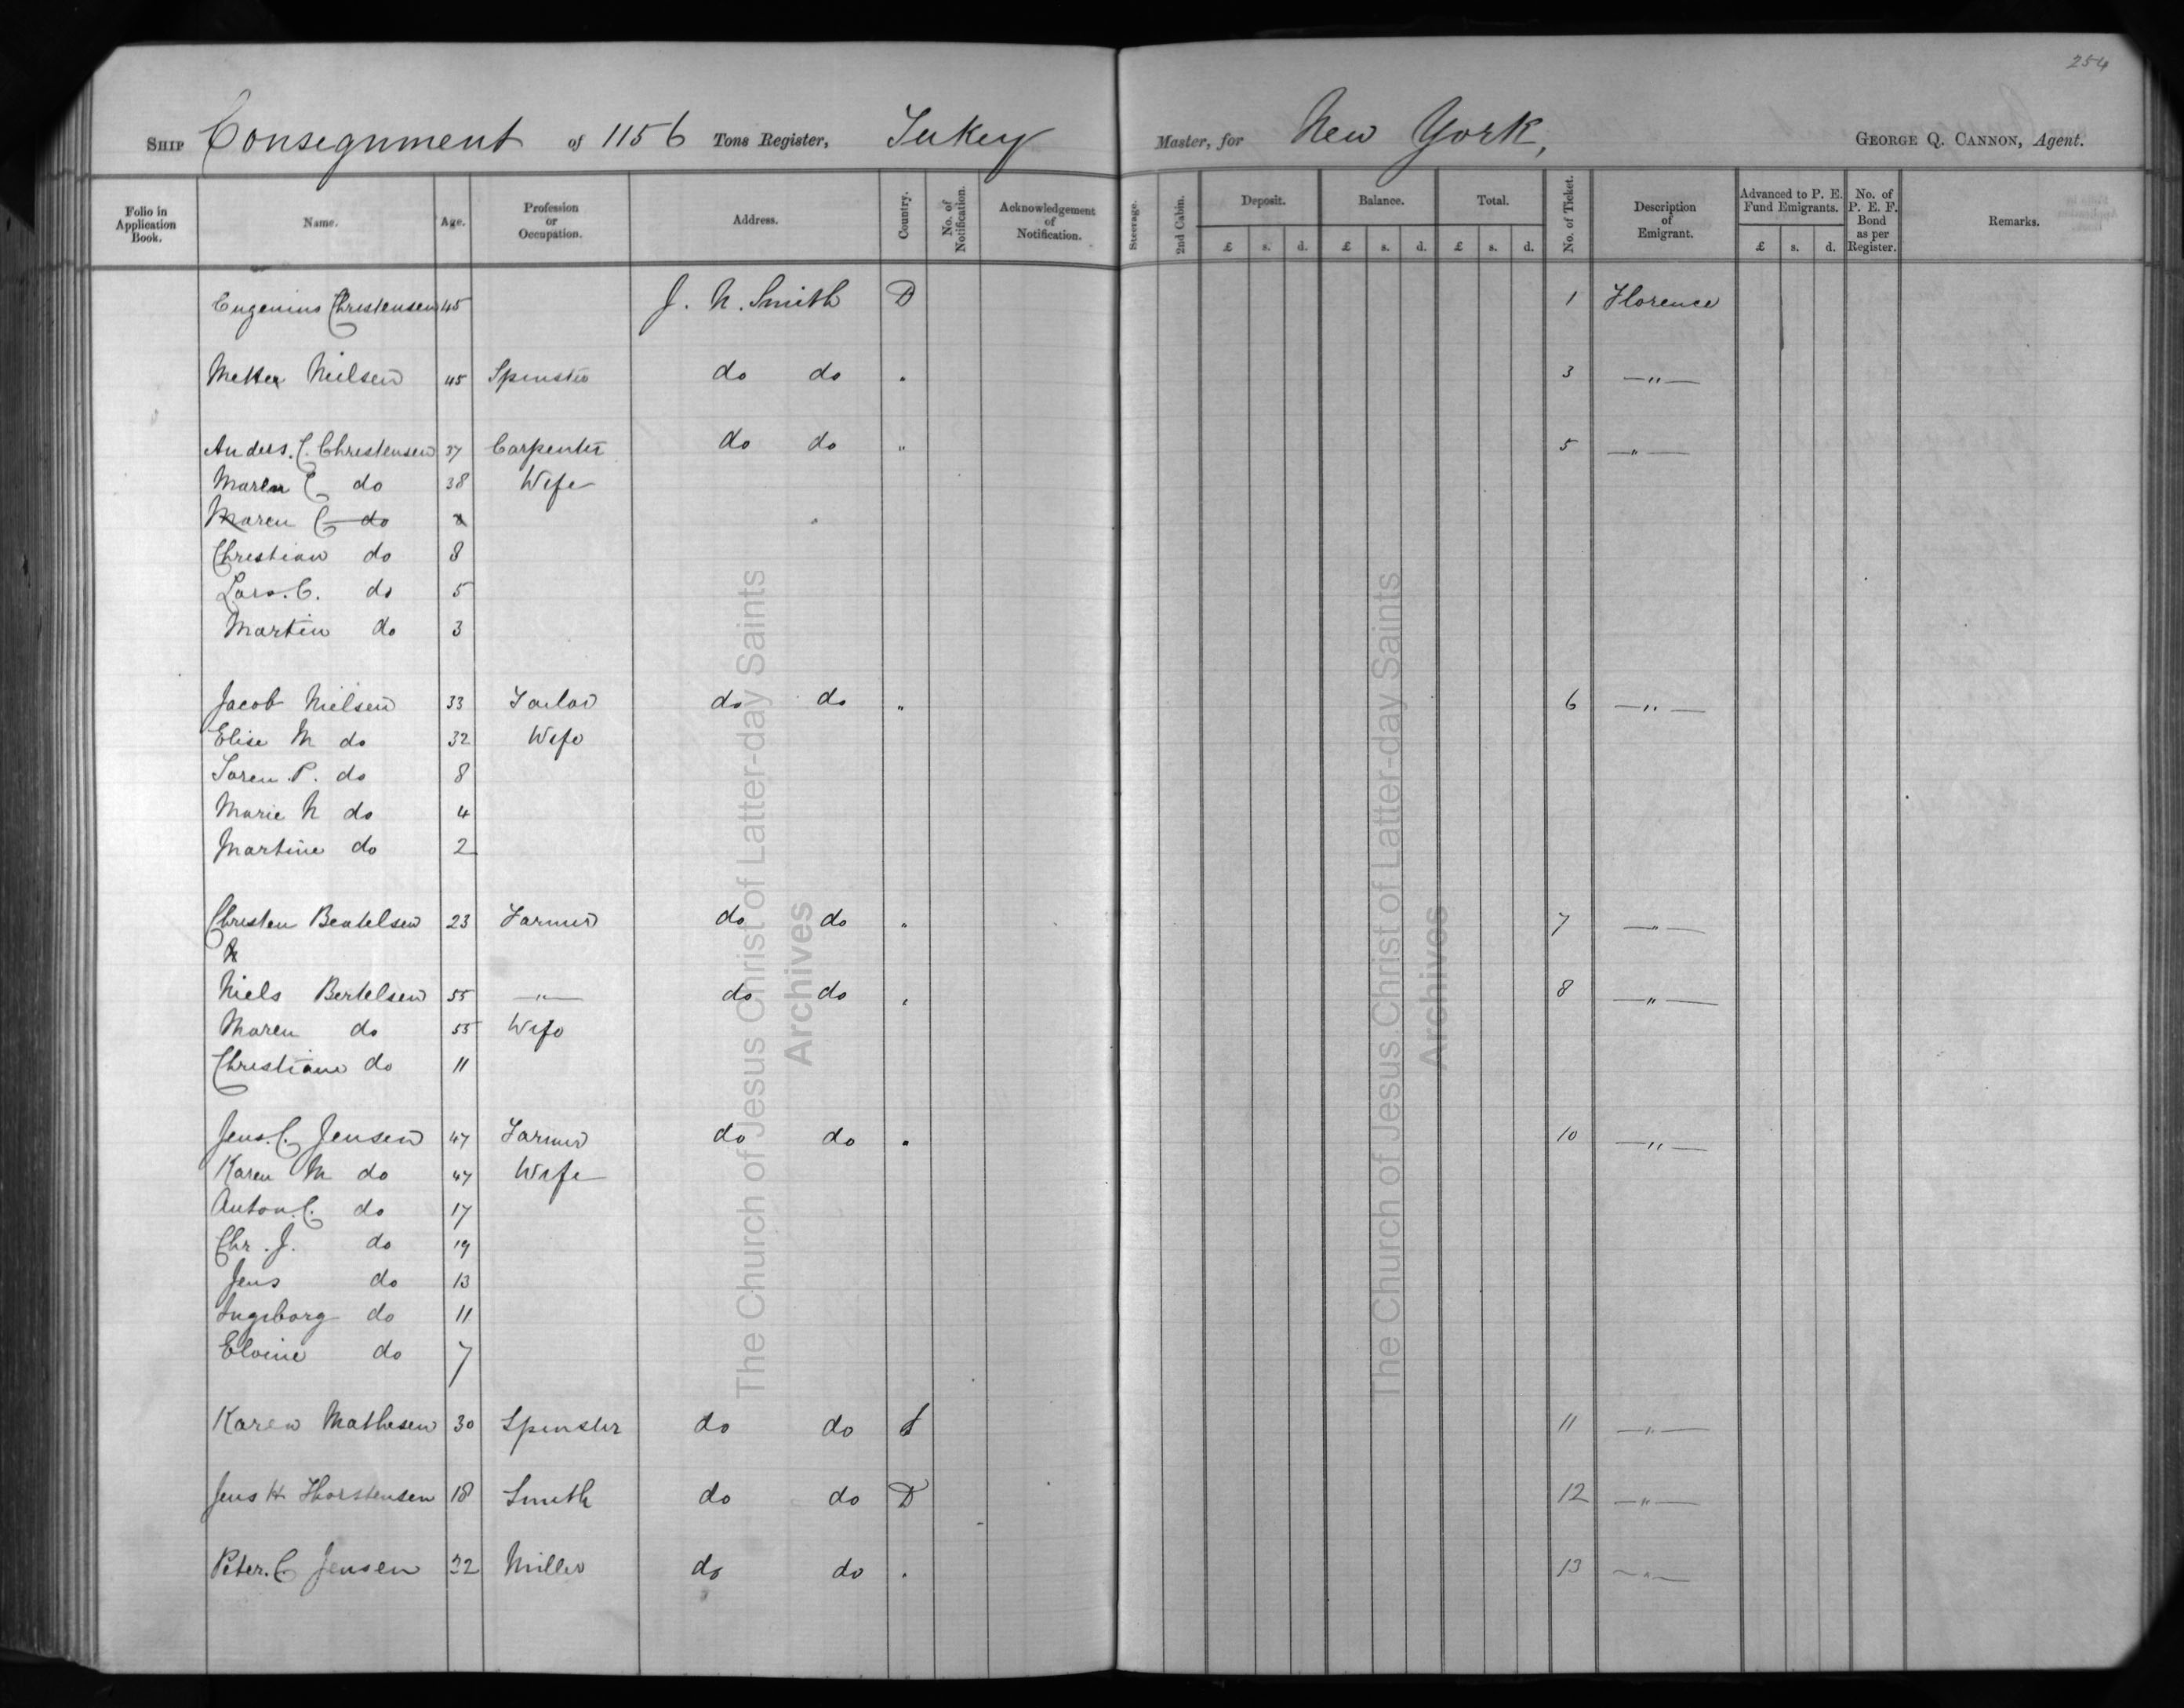 254
SHIP Consegnment of 1156 Tons Register, Tukey Master, for New York, GEORGE Q. CANNON, Agent.
Folio in Application Book. Name. Age. Profession or Occupation. Address. Country. No. of Notification. Acknowledgement of Notification. Steerage. 2nd Cabin. Deposit. £ s. d. Balance. £ s. d. Total. £ s. d. No. of Ticket. Description of Emigrant. Advanced to P. E. Fund Emigrants. £ s. d. No. of P. E. F. Bond as per Register. Remarks.
Eugenius Christensen 45 J. N. Smith D 1 Florence
Metter Nielsen 45 Spinster do do " 3 —"—
Anders. C. Christensen 37 Carpenter do do " 5 —"—
Maren C do 38 Wife
Maren C do 8
Christian do 8
Lars. C. do 5
Martin do 3
Jacob Nielsen 33 Tailor do do " 6 —"—
Elise M do 32 Wife
Soren. P. do 8
Marie N do 4
Martine do 2
Christen Beatelsen 23 Farmer do do " 7 —"—
N
Niels Bertelsen 55 —"— do do " 8 —"—
Maren do 55 Wife
Christiane do 11
Jens. C. Jensen 47 Farmer do do " 10 —"—
Karen M do 47 Wife
Anton. C. do 17
Chr. J. do 19
Jens do 13
Ingeborg do 11
Elvine do 7
Karen Mathesen 30 Spinster do do 11 —"—
Jens H Thorstensen 18 Smith do do D 12 —"—
Peter. C Jensen 32 Miller do do " 13 —"—
The Church of Jesus Christ of Latter-day Saints
Archives
The Church of Jesus Christ of Latter-day Saints
Archives